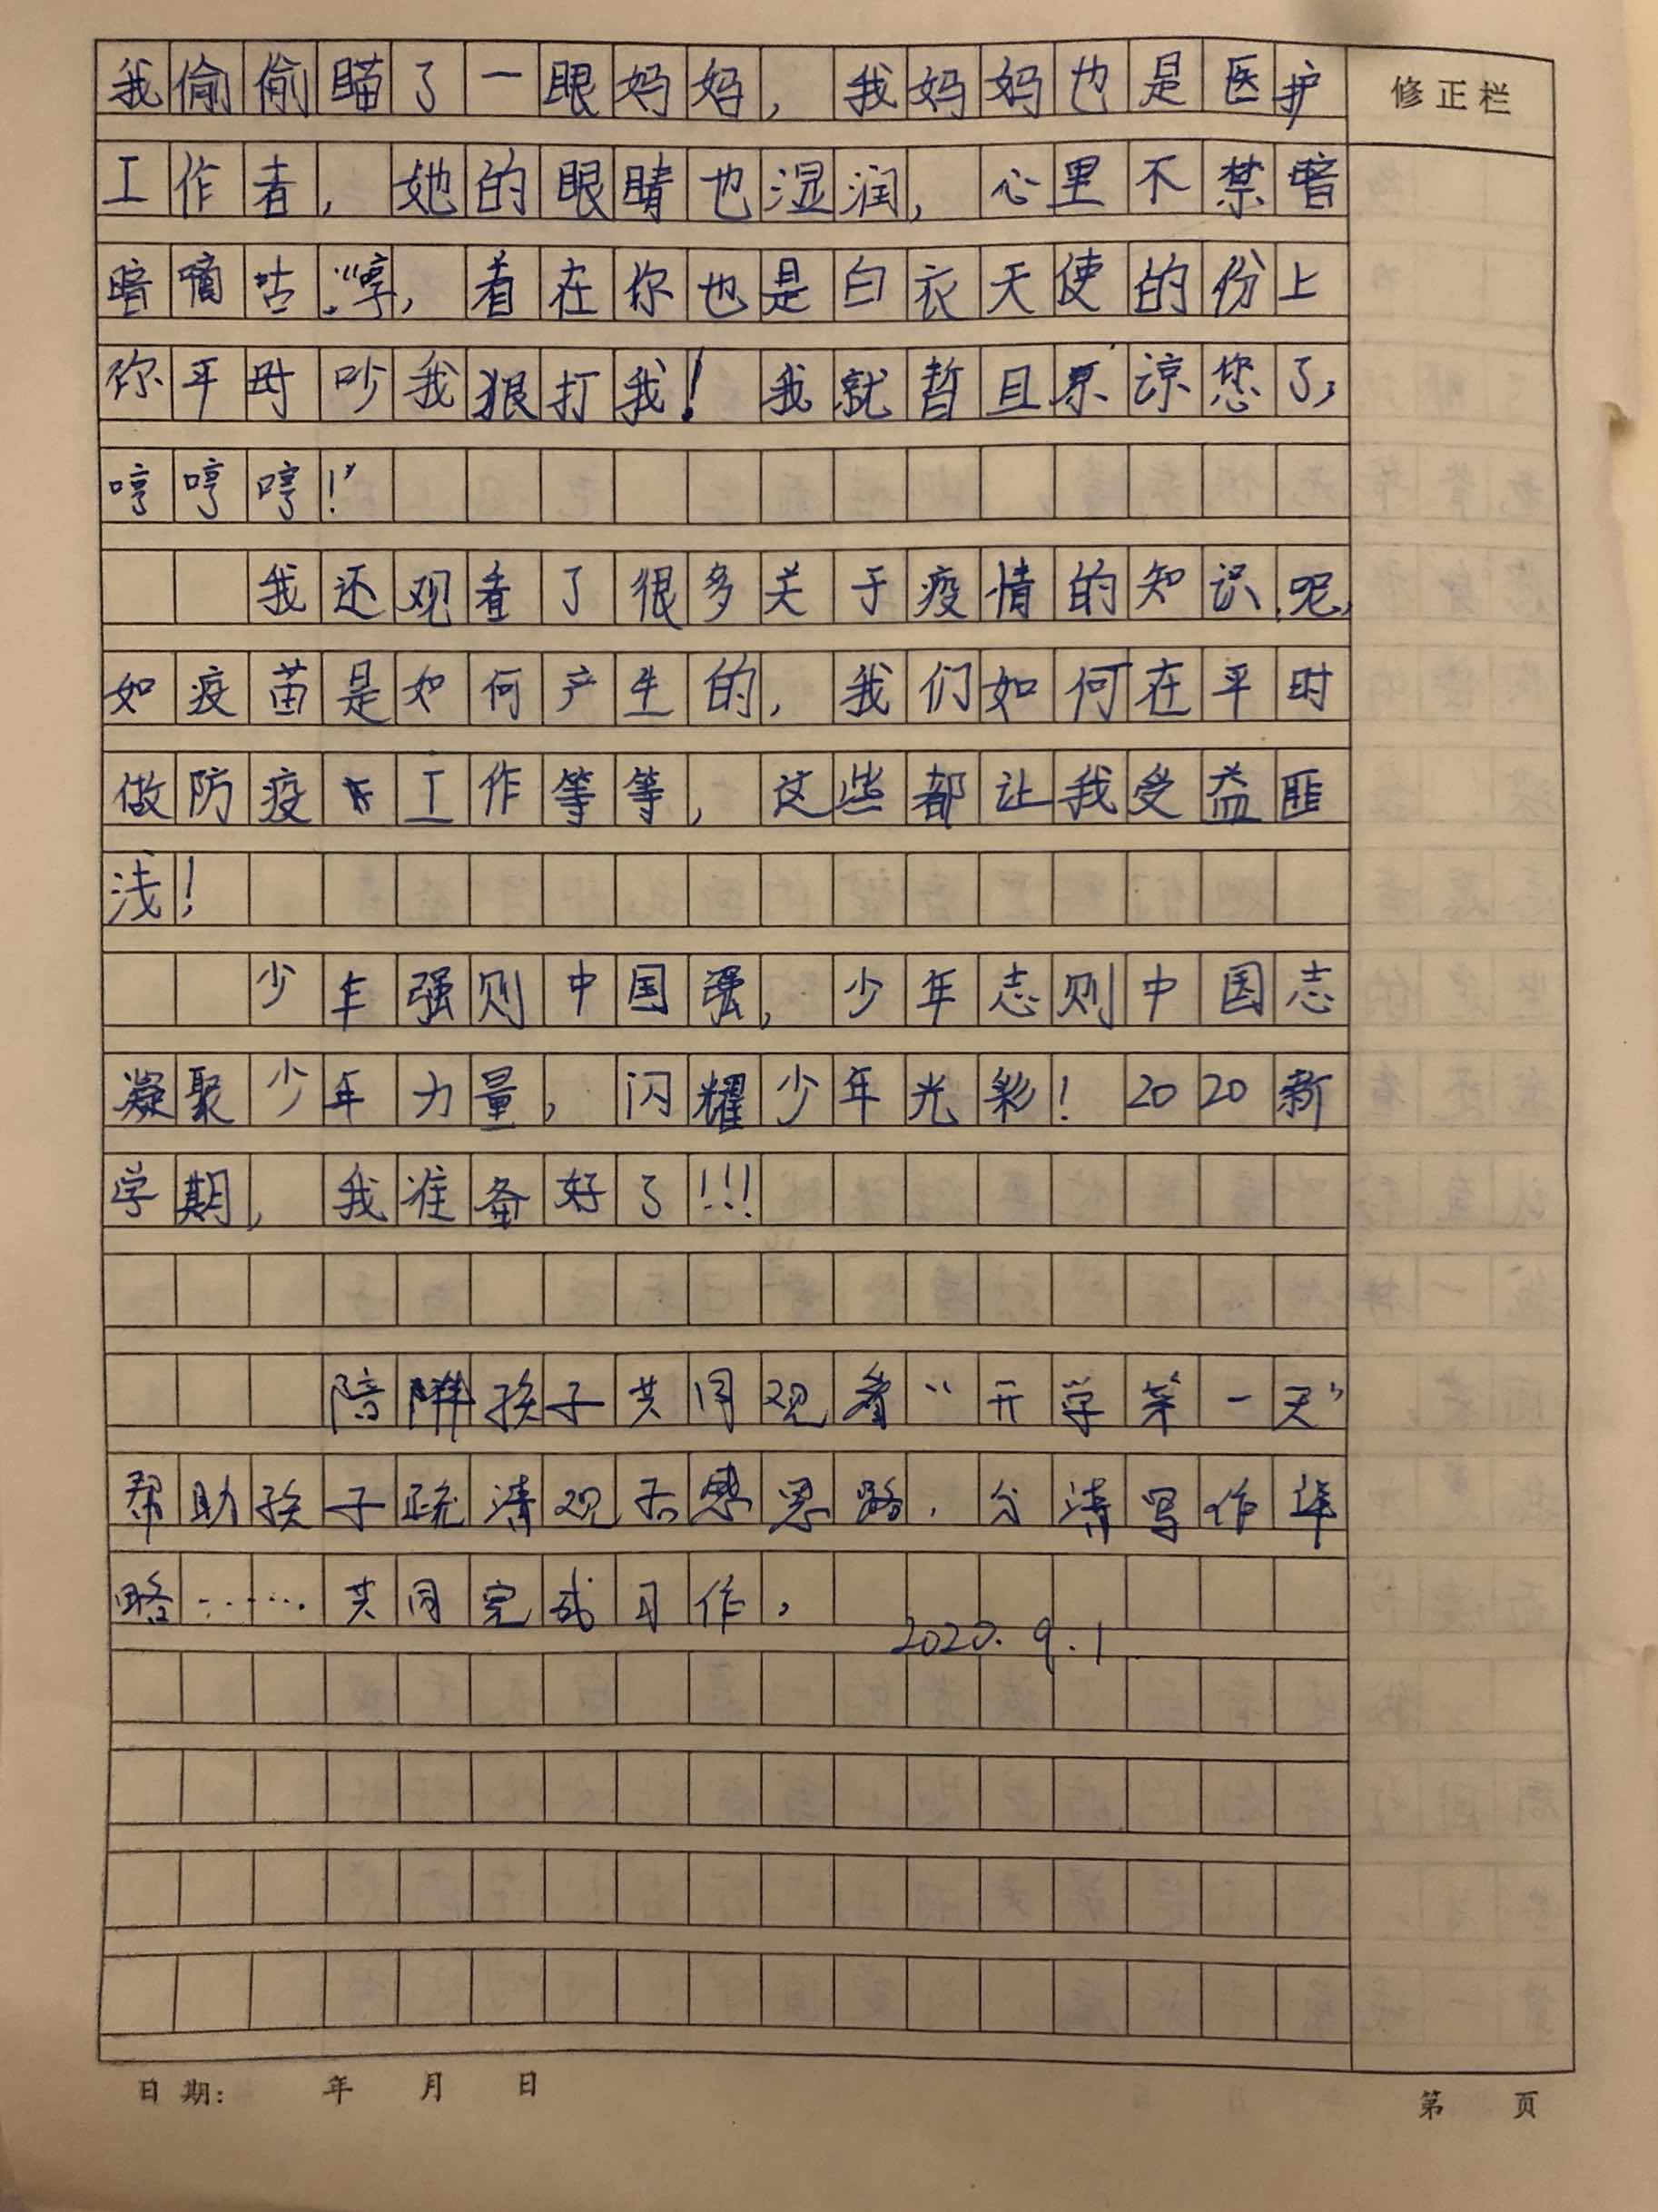 我偷偷瞄了一眼妈妈，我妈妈也是医护
修正栏
工作者，她的眼睛也湿润，心里不禁暗
暗嘀咕：“哼，看在你也是白衣天使的份上
你平时吵我狠打我！我就暂且原谅您了，
哼哼哼！”
我还观看了很多关于疫情的知识呢，
如疫苗是如何产生的，我们如何在平时
做防疫工作等等，这些都让我受益匪
浅！
少年强则中国强，少年志则中国志
凝聚少年力量，闪耀少年光彩！2020新
学期，我准备好了!!!
陪伴孩子共同观看“开学第一天”
帮助孩子疏清观后感思路，分清写作详
略……共同完成习作，
2020.9.1
日期： 年 月 日
第 页